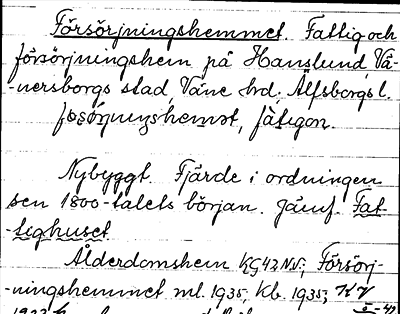 Försörjningshemmet. Fattig och
försörjningshem på Hanslund, Vä-
-nersborgs stad, Väne hrd, Älfsborgs l.
fosórjnıŋshemət, fàtigon.
Nybyggt. Fjärde i ordningen
sen 1800-talets början. Jämf. Fat-
-tighuset
Ålderdomshem KG42NN; Försörj-
-ningshemmet ml. 1935; Kb. 1935; KV